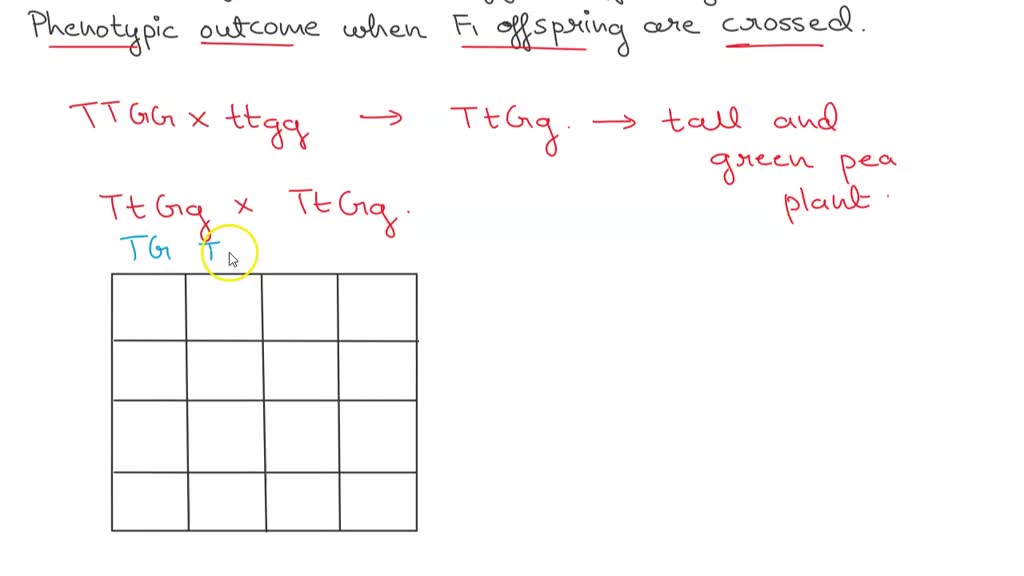 Phenotypic outcome when F1 offspring are crossed.
TTGG x ttgg → TtGg. → tall and
green pea
plant.
TtGg x TtGg.
TG T